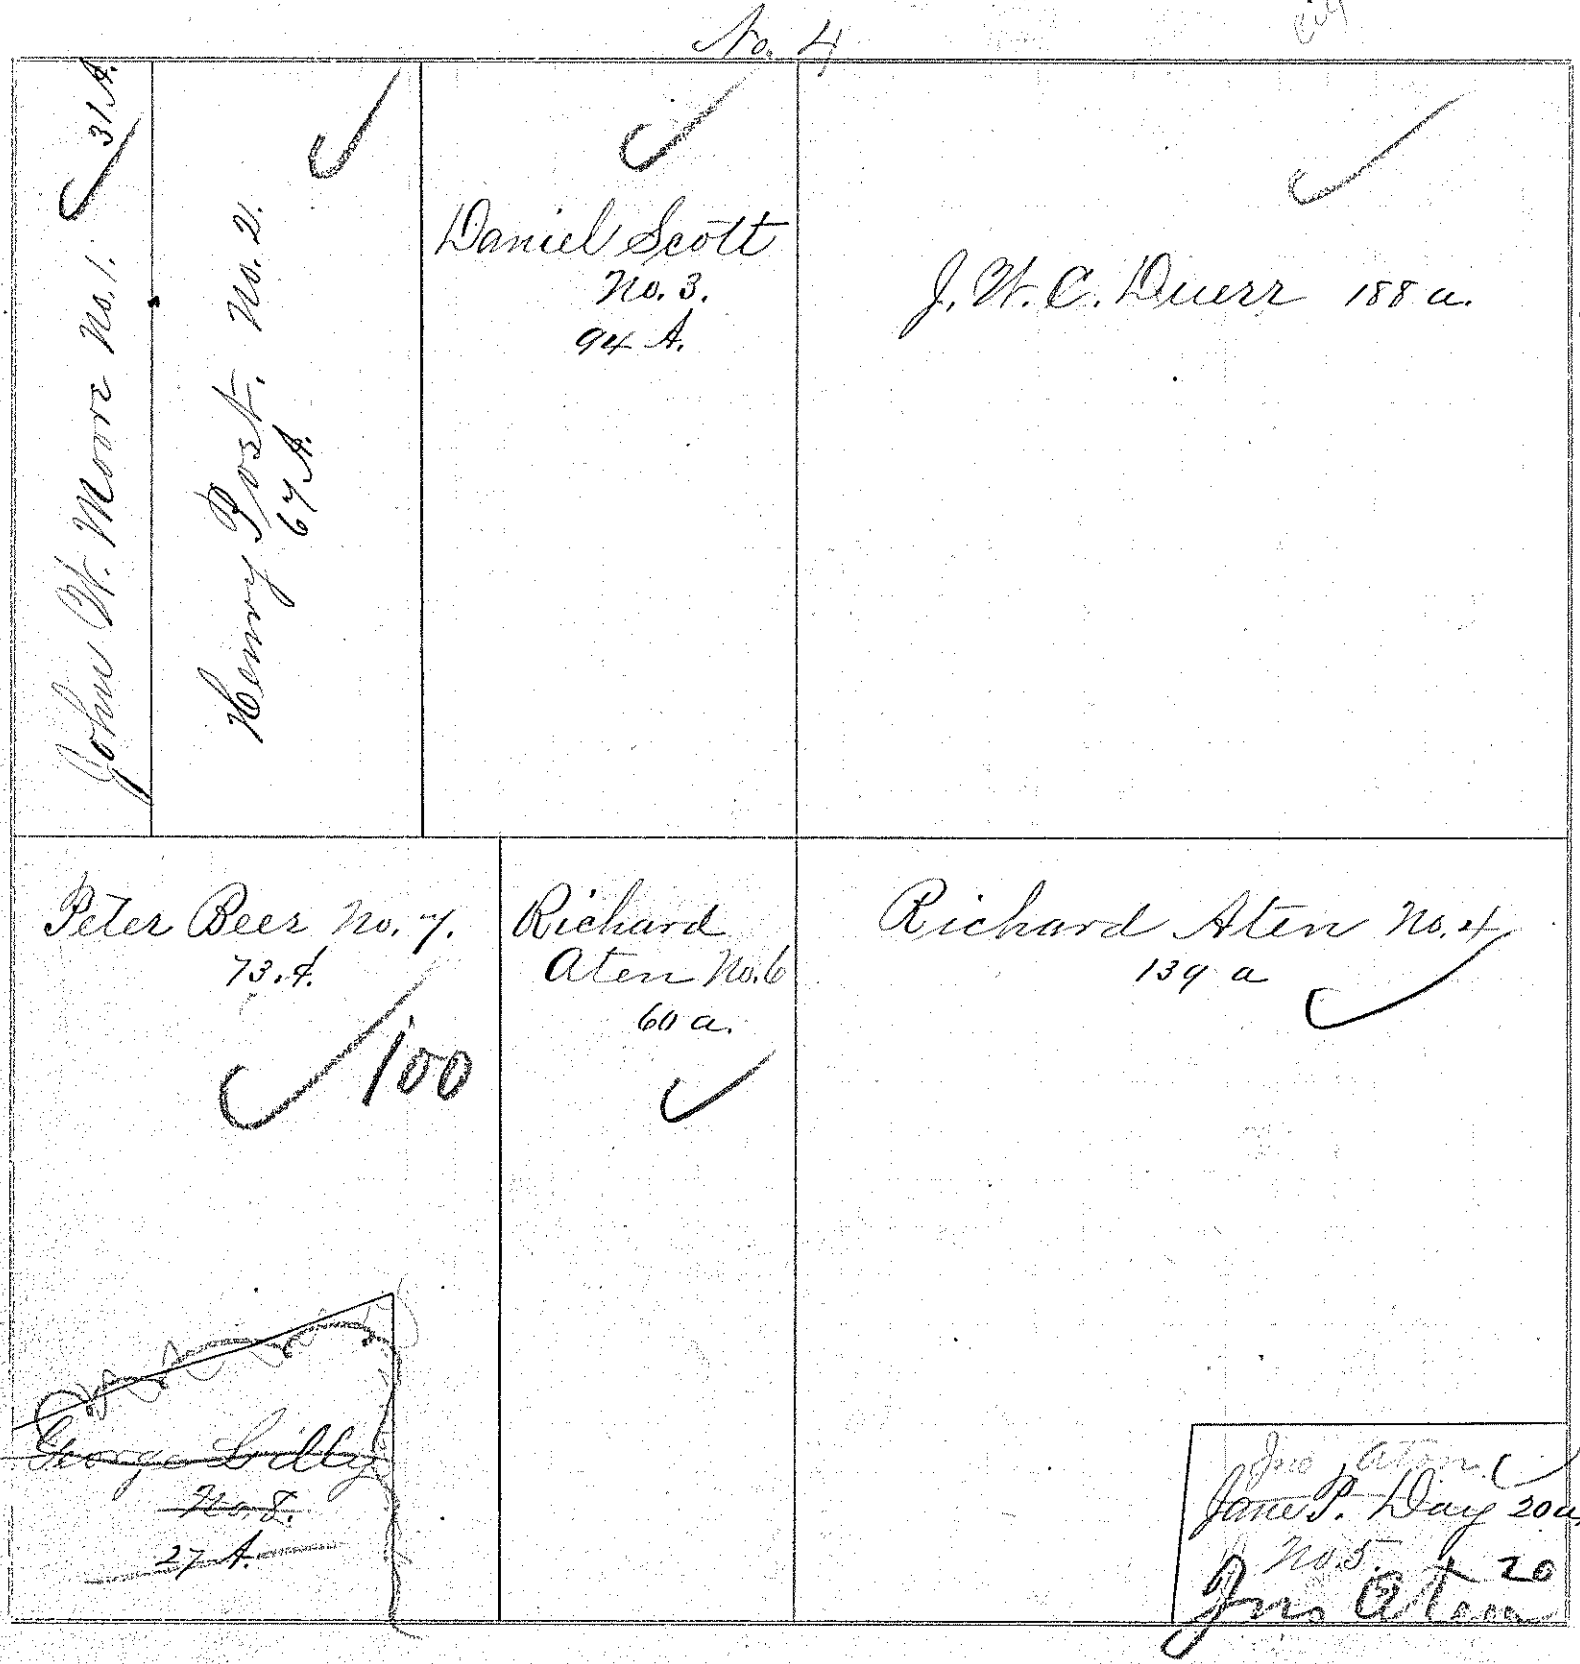 No. 4
John W. Moore No. 1. 31 A.
Henry Post. No. 2.
67 A.
Daniel Scott
No. 3.
94 A.
J. W. C. Duerr 188 a.
Peter Beer No. 7.
73. A.
100
Richard
Aten No. 6
60 a.
Richard Aten No. 4
139 a
George Lilly
No. 8.
27 A.
Jno Aten
Jane P. Day 20 a.
No. 5.
20
Jno Aten